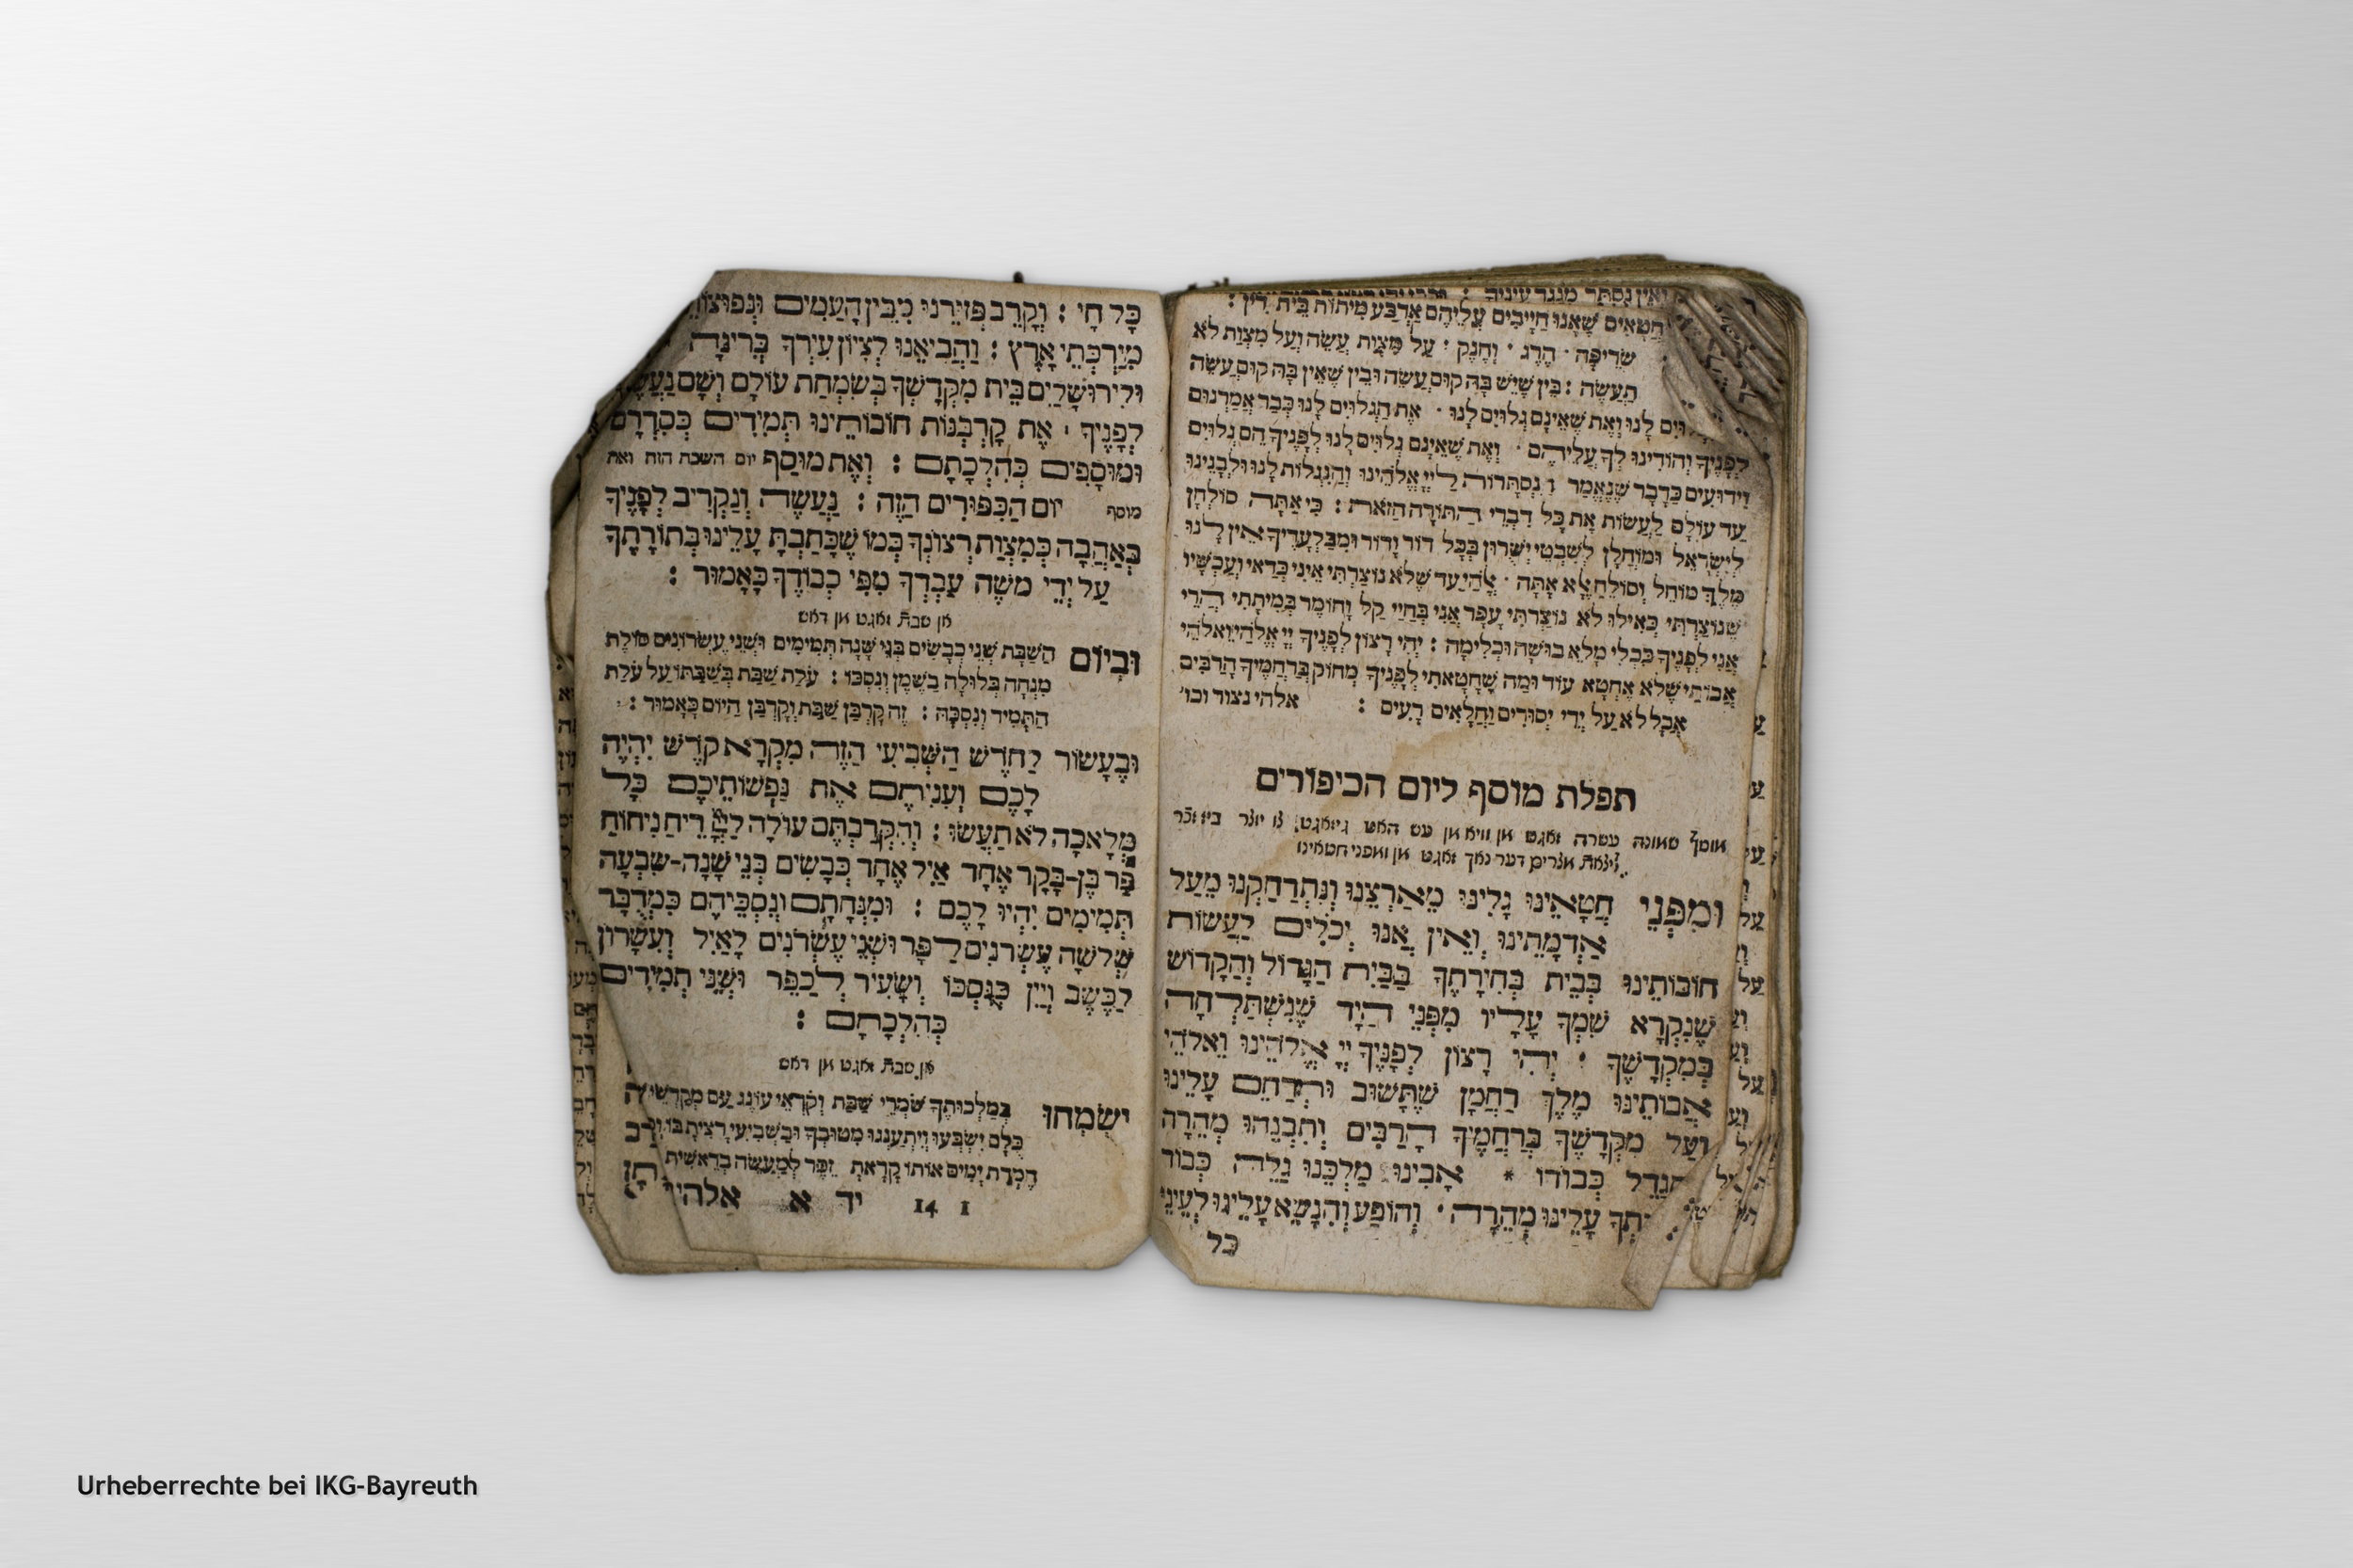 ואין נסתר מנגד עיניך :
חֲטָאִים שֶׁאָנוּ חַיָּיבִים עֲלֵיהֶם אַרְבַּע מִיתוֹת בֵּית דִּין :
שְׂרֵיפָה · הֶרֶג · וְחֶנֶק : עַל מִצְוַת עֲשֵׂה וְעַל מִצְוַת לֹא
תַעֲשֶׂה : בֵּין שֶׁיֵּשׁ בָּהּ קוּם עֲשֵׂה וּבֵין שֶׁאֵין בָּהּ קוּם עֲשֵׂה
לָנוּ וְאֶת שֶׁאֵינָם גְּלוּיִם לָנוּ · אֶת הַגְּלוּיִם לָנוּ כְּבָר אֲמַרְנוּם
לְפָנֶיךָ וְהוֹדִינוּ לְךָ עֲלֵיהֶם · וְאֶת שֶׁאֵינָם גְּלוּיִם לָנוּ לְפָנֶיךָ הֵם גְּלוּיִם
וִידוּעִים כַּדָּבָר שֶׁנֶּאֱמַר הַנִּסְתָּרוֹת לַיְיָ אֱלֹהֵינוּ וְהַנִּגְלוֹת לָנוּ וּלְבָנֵינוּ
עַד עוֹלָם לַעֲשׂוֹת אֶת כָּל דִּבְרֵי הַתּוֹרָה הַזֹּאת : כִּי אַתָּה סוֹלְחָן
לְיִשְׂרָאֵל וּמוֹחֲלָן לְשִׁבְטֵי יְשֻׁרוּן בְּכָל דּוֹר וָדוֹר וּמִבַּלְעָדֶיךָ אֵין לָנוּ
מֶלֶךְ מוֹחֵל וְסוֹלֵחַ אֶלָּא אָתָּה · אֱלֹהַי עַד שֶׁלֹּא נוֹצַרְתִּי אֵינִי כְדַאי וְעַכְשָׁיו
שֶׁנּוֹצַרְתִּי כְּאִילּוּ לֹא נוֹצַרְתִּי עָפָר אֲנִי בְּחַיַּי קַל וָחוֹמֶר בְּמִיתָתִי הֲרֵי
אֲנִי לְפָנֶיךָ כִּכְלִי מָלֵא בוּשָׁה וּכְלִימָה : יְהִי רָצוֹן לְפָנֶיךָ יְיָ אֱלֹהַי וֵאלֹהֵי
אֲבוֹתַי שֶׁלֹּא אֶחְטָא עוֹד וּמַה שֶּׁחָטָאתִי לְפָנֶיךָ מְחוֹק בְּרַחֲמֶיךָ הָרַבִּים
אֲבָל לֹא עַל יְדֵי יִסּוּרִים וָחֳלָאִים רָעִים : אלהי נצור וכו'
תפלת מוסף ליום הכיפורים
מוסף שמונה עשרה זאגט מן וויא מן עש האט גיזאגט
דער נאך זאגט מן ומפני חטאינו
וּמִפְּנֵי חֲטָאֵינוּ גָּלִינוּ מֵאַרְצֵנוּ וְנִתְרַחַקְנוּ מֵעַל
אַדְמָתֵינוּ וְאֵין אֲנוּ יְכֹלִים לַעֲשׂוֹת
חוֹבוֹתֵינוּ בְּבֵית בְּחִירָתֶךָ בַּבַּיִת הַגָּדוֹל וְהַקָּדוֹשׁ
שֶׁנִּקְרָא שִׁמְךָ עָלָיו מִפְּנֵי הַיָּד שֶׁנִּשְׁתַּלְּחָה
בְּמִקְדָּשֶׁךָ : יְהִי רָצוֹן לְפָנֶיךָ יְיָ אֱלֹהֵינוּ וֵאלֹהֵי
אֲבוֹתֵינוּ מֶלֶךְ רַחֲמָן שֶׁתָּשׁוּב וּתְרַחֵם עָלֵינוּ
וְעַל מִקְדָּשְׁךָ בְּרַחֲמֶיךָ הָרַבִּים וְתִבְנֵהוּ מְהֵרָה
וּתְגַדֵּל כְּבוֹדוֹ * אָבִינוּ מַלְכֵּנוּ גַּלֵּה כְּבוֹד
עָלֵינוּ מְהֵרָה · וְהוֹפַע וְהִנָּשֵׂא עָלֵינוּ לְעֵינֵי
כָּל
כָּל חַי : וְקָרֵב פְּזוּרֵינוּ מִבֵּין הָעַמִּים וּנְפוּצוֹ
מִיַּרְכְּתֵי אָרֶץ : וַהֲבִיאֵנוּ לְצִיּוֹן עִירְךָ בְּרִינָּה
וְלִירוּשָׁלַיִם בֵּית מִקְדָּשְׁךָ בְּשִׂמְחַת עוֹלָם וְשָׁם נַעֲשֶׂה
לְפָנֶיךָ · אֶת קָרְבְּנוֹת חוֹבוֹתֵינוּ תְּמִידִים כְּסִדְרָם
וּמוּסָפִים כְּהִלְכָתָם : וְאֶת מוּסַף יום השבת הזה ואת
מוסף יוֹם הַכִּפּוּרִים הַזֶּה : נַעֲשֶׂה וְנַקְרִיב לְפָנֶיךָ
בְּאַהֲבָה כְּמִצְוַת רְצוֹנֶךָ כְּמוֹ שֶׁכָּתַבְתָּ עָלֵינוּ בְּתוֹרָתֶךָ
עַל יְדֵי מֹשֶׁה עַבְדְּךָ מִפִּי כְבוֹדֶךָ כָּאָמוּר :
אן שבת זאגט מן דאש
וּבְיוֹם הַשַּׁבָּת שְׁנֵי כְבָשִׂים בְּנֵי שָׁנָה תְּמִימִים וּשְׁנֵי עֶשְׂרוֹנִים סוֹלֶת
מִנְחָה בְּלוּלָה בַשֶּׁמֶן וְנִסְכּוֹ : עֹלַת שַׁבַּת בְּשַׁבַּתּוֹ עַל עֹלַת
הַתָּמִיד וְנִסְכָּהּ : זֶה קָרְבַּן שַׁבָּת וְקָרְבַּן הַיּוֹם כָּאָמוּר :
וּבֶעָשׂוֹר לַחֹדֶשׁ הַשְּׁבִיעִי הַזֶּה מִקְרָא קֹדֶשׁ יִהְיֶה
לָכֶם וְעִנִּיתֶם אֶת נַפְשׁוֹתֵיכֶם כָּל
מְלָאכָה לֹא תַעֲשׂוּ : וְהִקְרַבְתֶּם עוֹלָה לַיְיָ רֵיחַ נִיחוֹחַ
פַּר בֶּן-בָּקָר אֶחָד אַיִל אֶחָד כְּבָשִׂים בְּנֵי שָׁנָה-שִׁבְעָה
תְּמִימִים יִהְיוּ לָכֶם : וּמִנְחָתָם וְנִסְכֵּיהֶם כִּמְדֻבָּר
שְׁלֹשָׁה עֶשְׂרֹנִים לַפָּר וּשְׁנֵי עֶשְׂרֹנִים לָאַיִל וְעִשָּׂרוֹן
לַכֶּבֶשׂ וְיַיִן כְּנִסְכּוֹ וְשָׂעִיר לְכַפֵּר וּשְׁנֵי תְמִידִים
כְּהִלְכָתָם :
אן שבת זאגט מן דאש
יִשְׂמְחוּ בְמַלְכוּתֶךָ שֹׁמְרֵי שַׁבָּת וְקֹרְאֵי עוֹנֶג עַם מְקַדְּשֵׁי
כֻּלָּם יִשְׂבְּעוּ וְיִתְעַנְּגוּ מִטּוּבֶךָ וּבַשְּׁבִיעִי רָצִיתָ בּוֹ
חֶמְדַּת יָמִים אוֹתוֹ קָרָאתָ זֵכֶר לְמַעֲשֵׂה בְרֵאשִׁית
I 14 יד א אלהינו
Urheberrechte bei IKG-Bayreuth